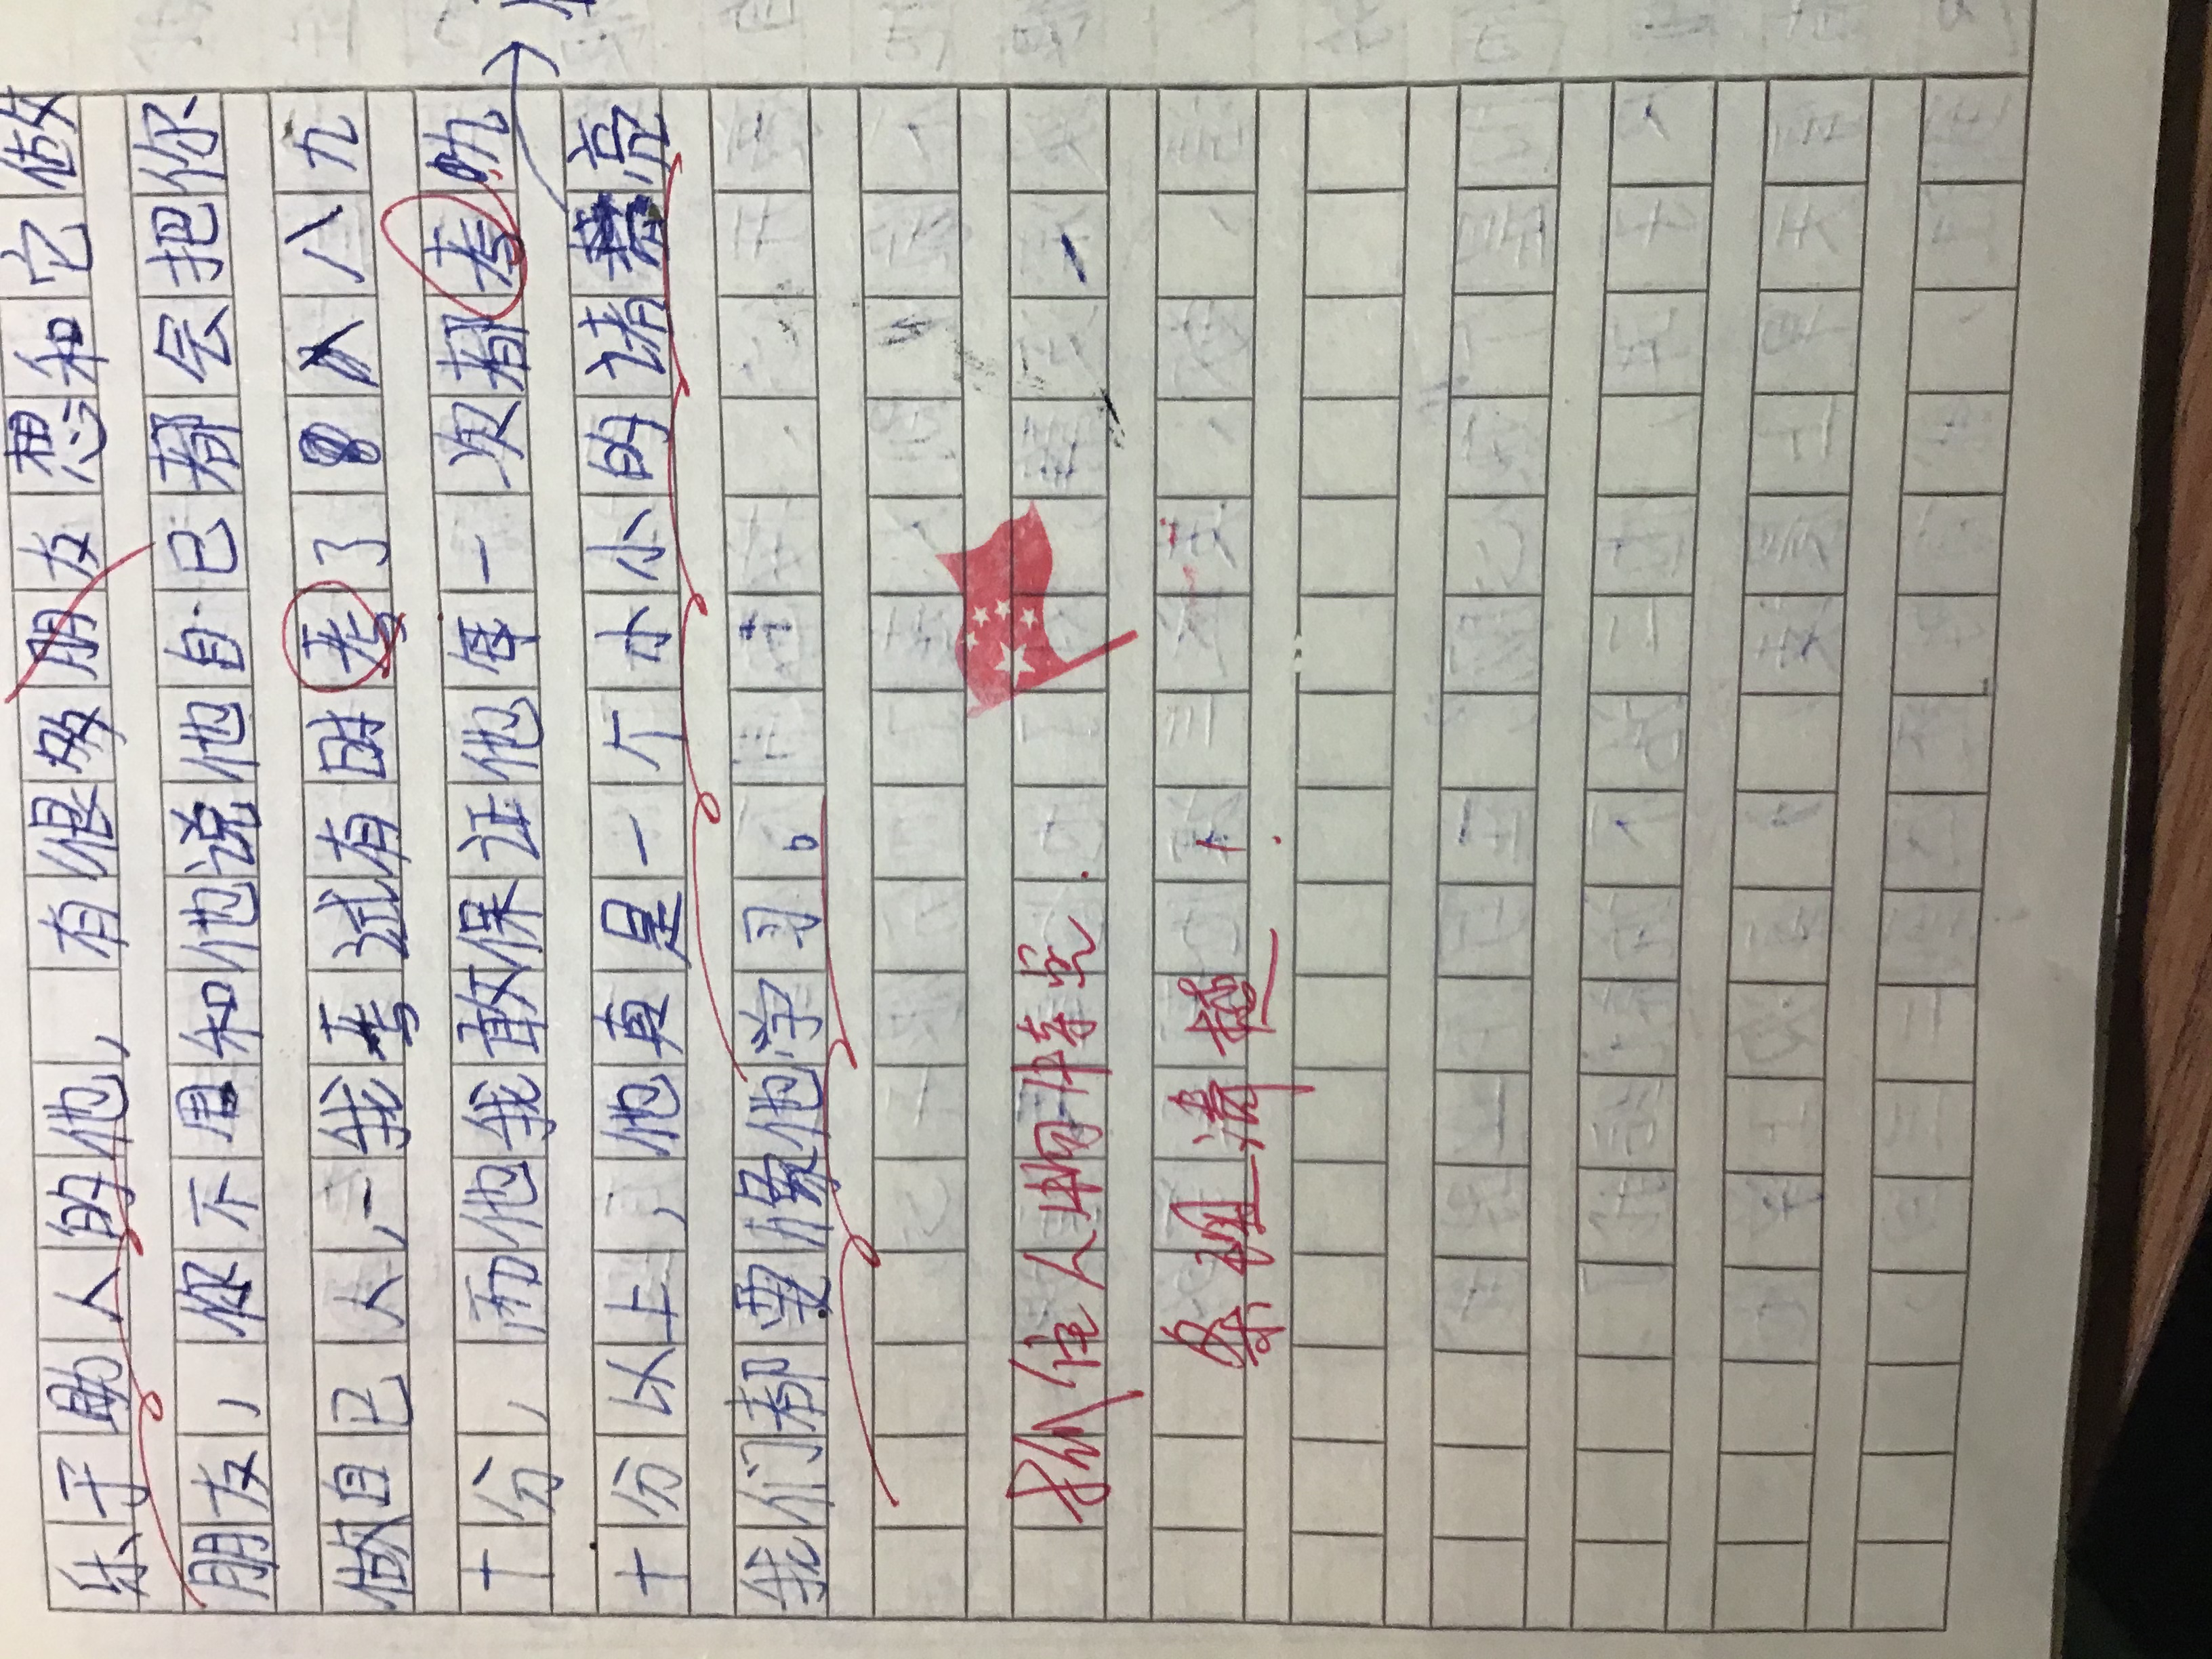 乐于助人的他，有很多朋友想和它做
朋友，你不用和他说他自己都会把你
做自己人，一我考试有时考了八八九
十分，而他我敢保证他每一次都考九
十分以上，他真是一个小小的诸葛亮
我们都要像他学习。
抓住人物特点
条理清楚